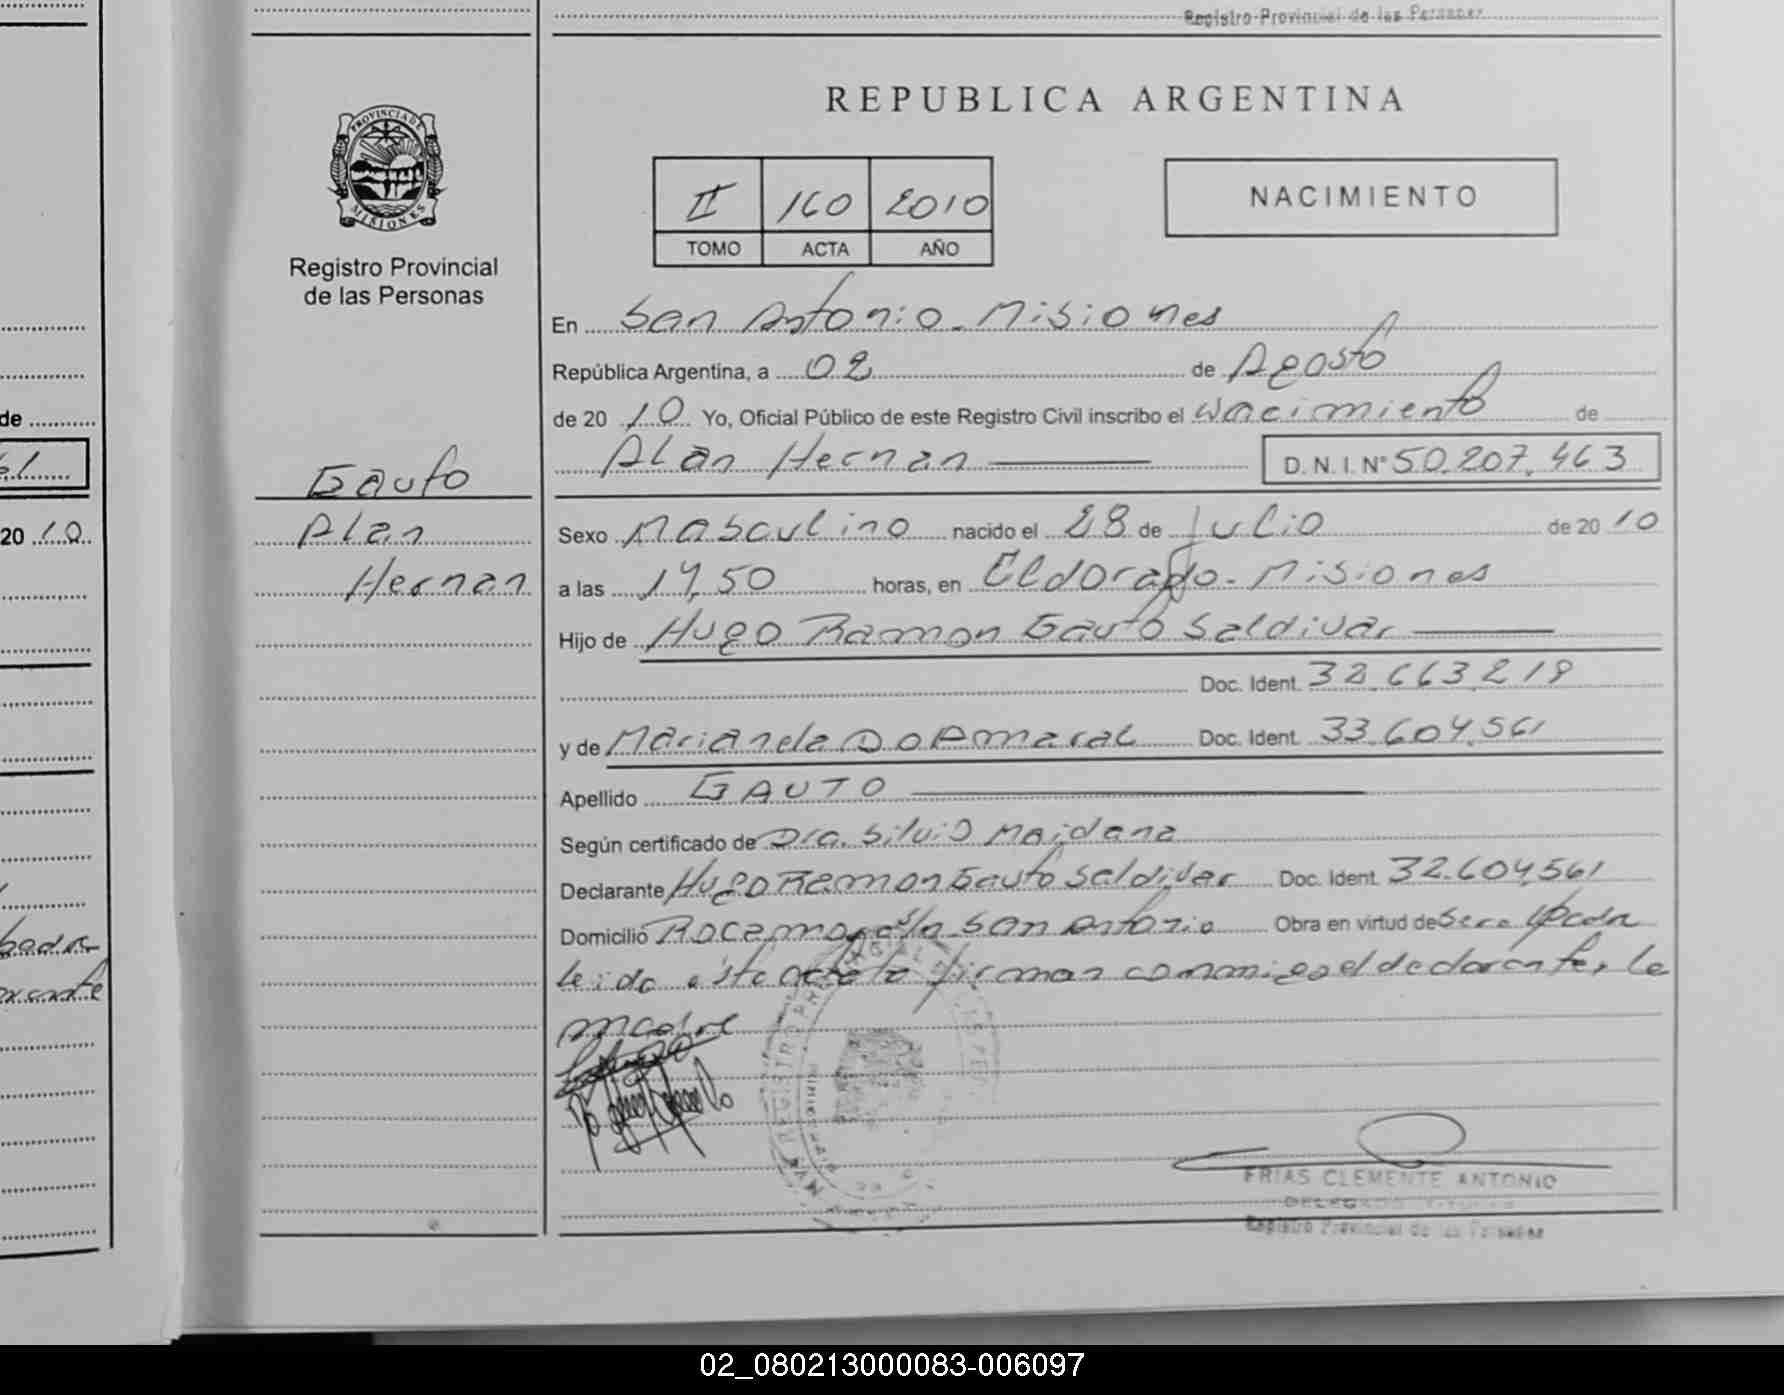 Registro Provincial de las Personas
REPUBLICA ARGENTINA
PROVINCIA DE
MISIONES
Registro Provincial
de las Personas
II 160 2010
TOMO ACTA AÑO
NACIMIENTO
En San Antonio - Misiones
República Argentina, a 02 de Agosto
de 20 10 Yo, Oficial Público de este Registro Civil inscribo el Nacimiento de
Alan Hernan D. N. I. Nº 50.207.463
Gauto
Alan
Hernan
Sexo Masculino nacido el 28 de Julio de 20 10
a las 17,50 horas, en Eldorado - Misiones
Hijo de Hugo Ramon Gauto Saldivar
Doc. Ident. 32.663.219
y de Marianela Do Amaral Doc. Ident. 33.604.561
Apellido GAUTO
Según certificado de Dra. Silvia Maidana
Declarante Hugo Ramon Gauto Saldivar Doc. Ident. 32.604.561
Domicilio Rocamora s/n San Antonio Obra en virtud de
leida este acta la firman conmigo el declarante, la
madre
FRIAS CLEMENTE ANTONIO
DELEGADO
Registro Provincial de las Personas
de
20 10
02_080213000083-006097